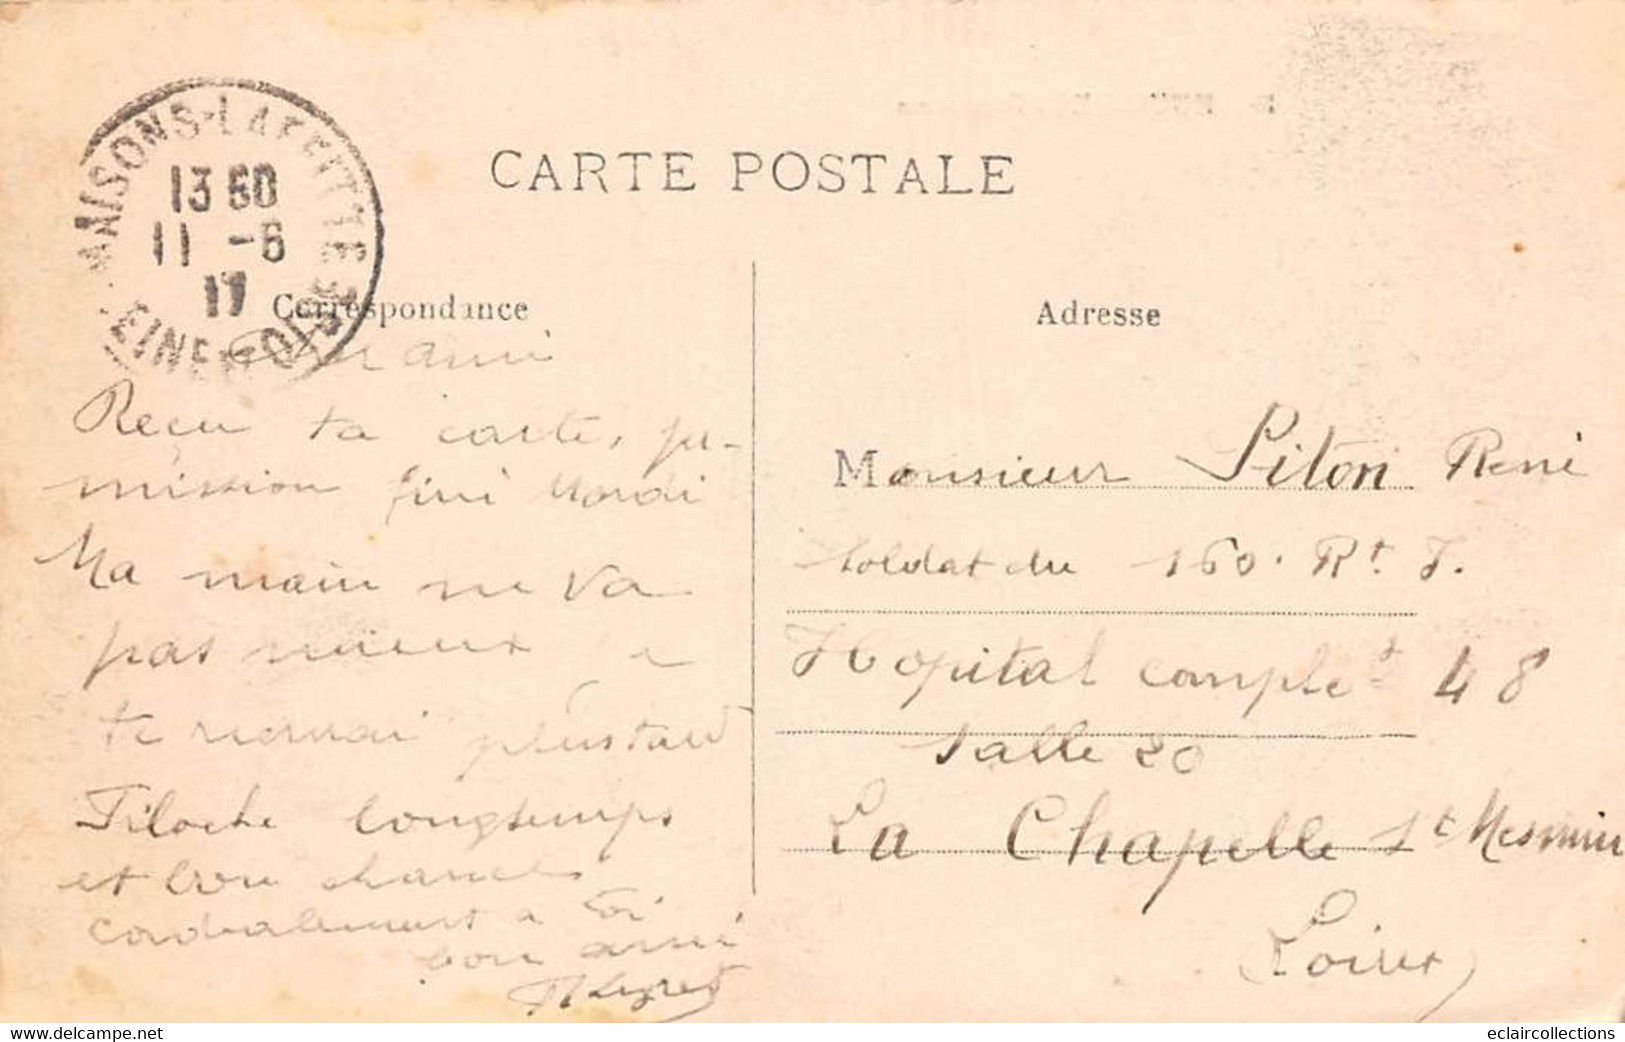 MAISONS-LAFFITTE
13 50
11 -6
17
SEINE ET OISE
CARTE POSTALE
Correspondance
ami
Reçu ta carte, per-
mission fini Mardi
Ma main ne va
pas mieux
te plustard
Filoche longtemps
et bon chance
cordialement a toi
bon ami
Adresse
Monsieur Piton René
Soldat du 160. Rt. I.
Hopital complet 48
Salle 20
La Chapelle St Mesmin
(Loiret)
www.delcampe.net
eclaircollections